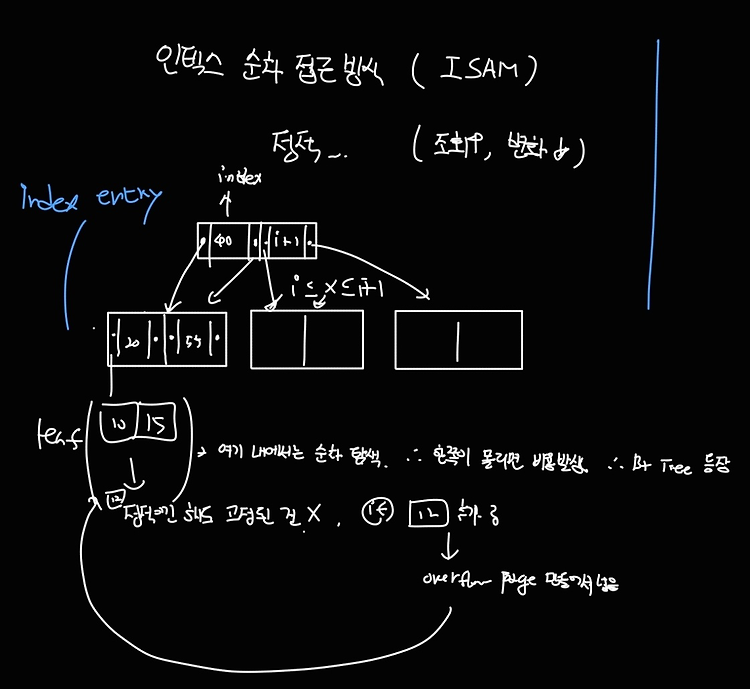 인덱스 순차 접근 방식 ( ISAM )
정적... ( 조회↑, 변화↓ )
index
Index entry
40 i+1
i ≤ x ≤ i+1
20
leaf
10 15
→ 여기 내에서는 순차 탐색. ∴ 한쪽이 몰리면 비용발생. ∴ B+ Tree 등장
12
정적이긴 해도 고정된 건 X. if 12 추가 중
overflow page 만들어서 넣음